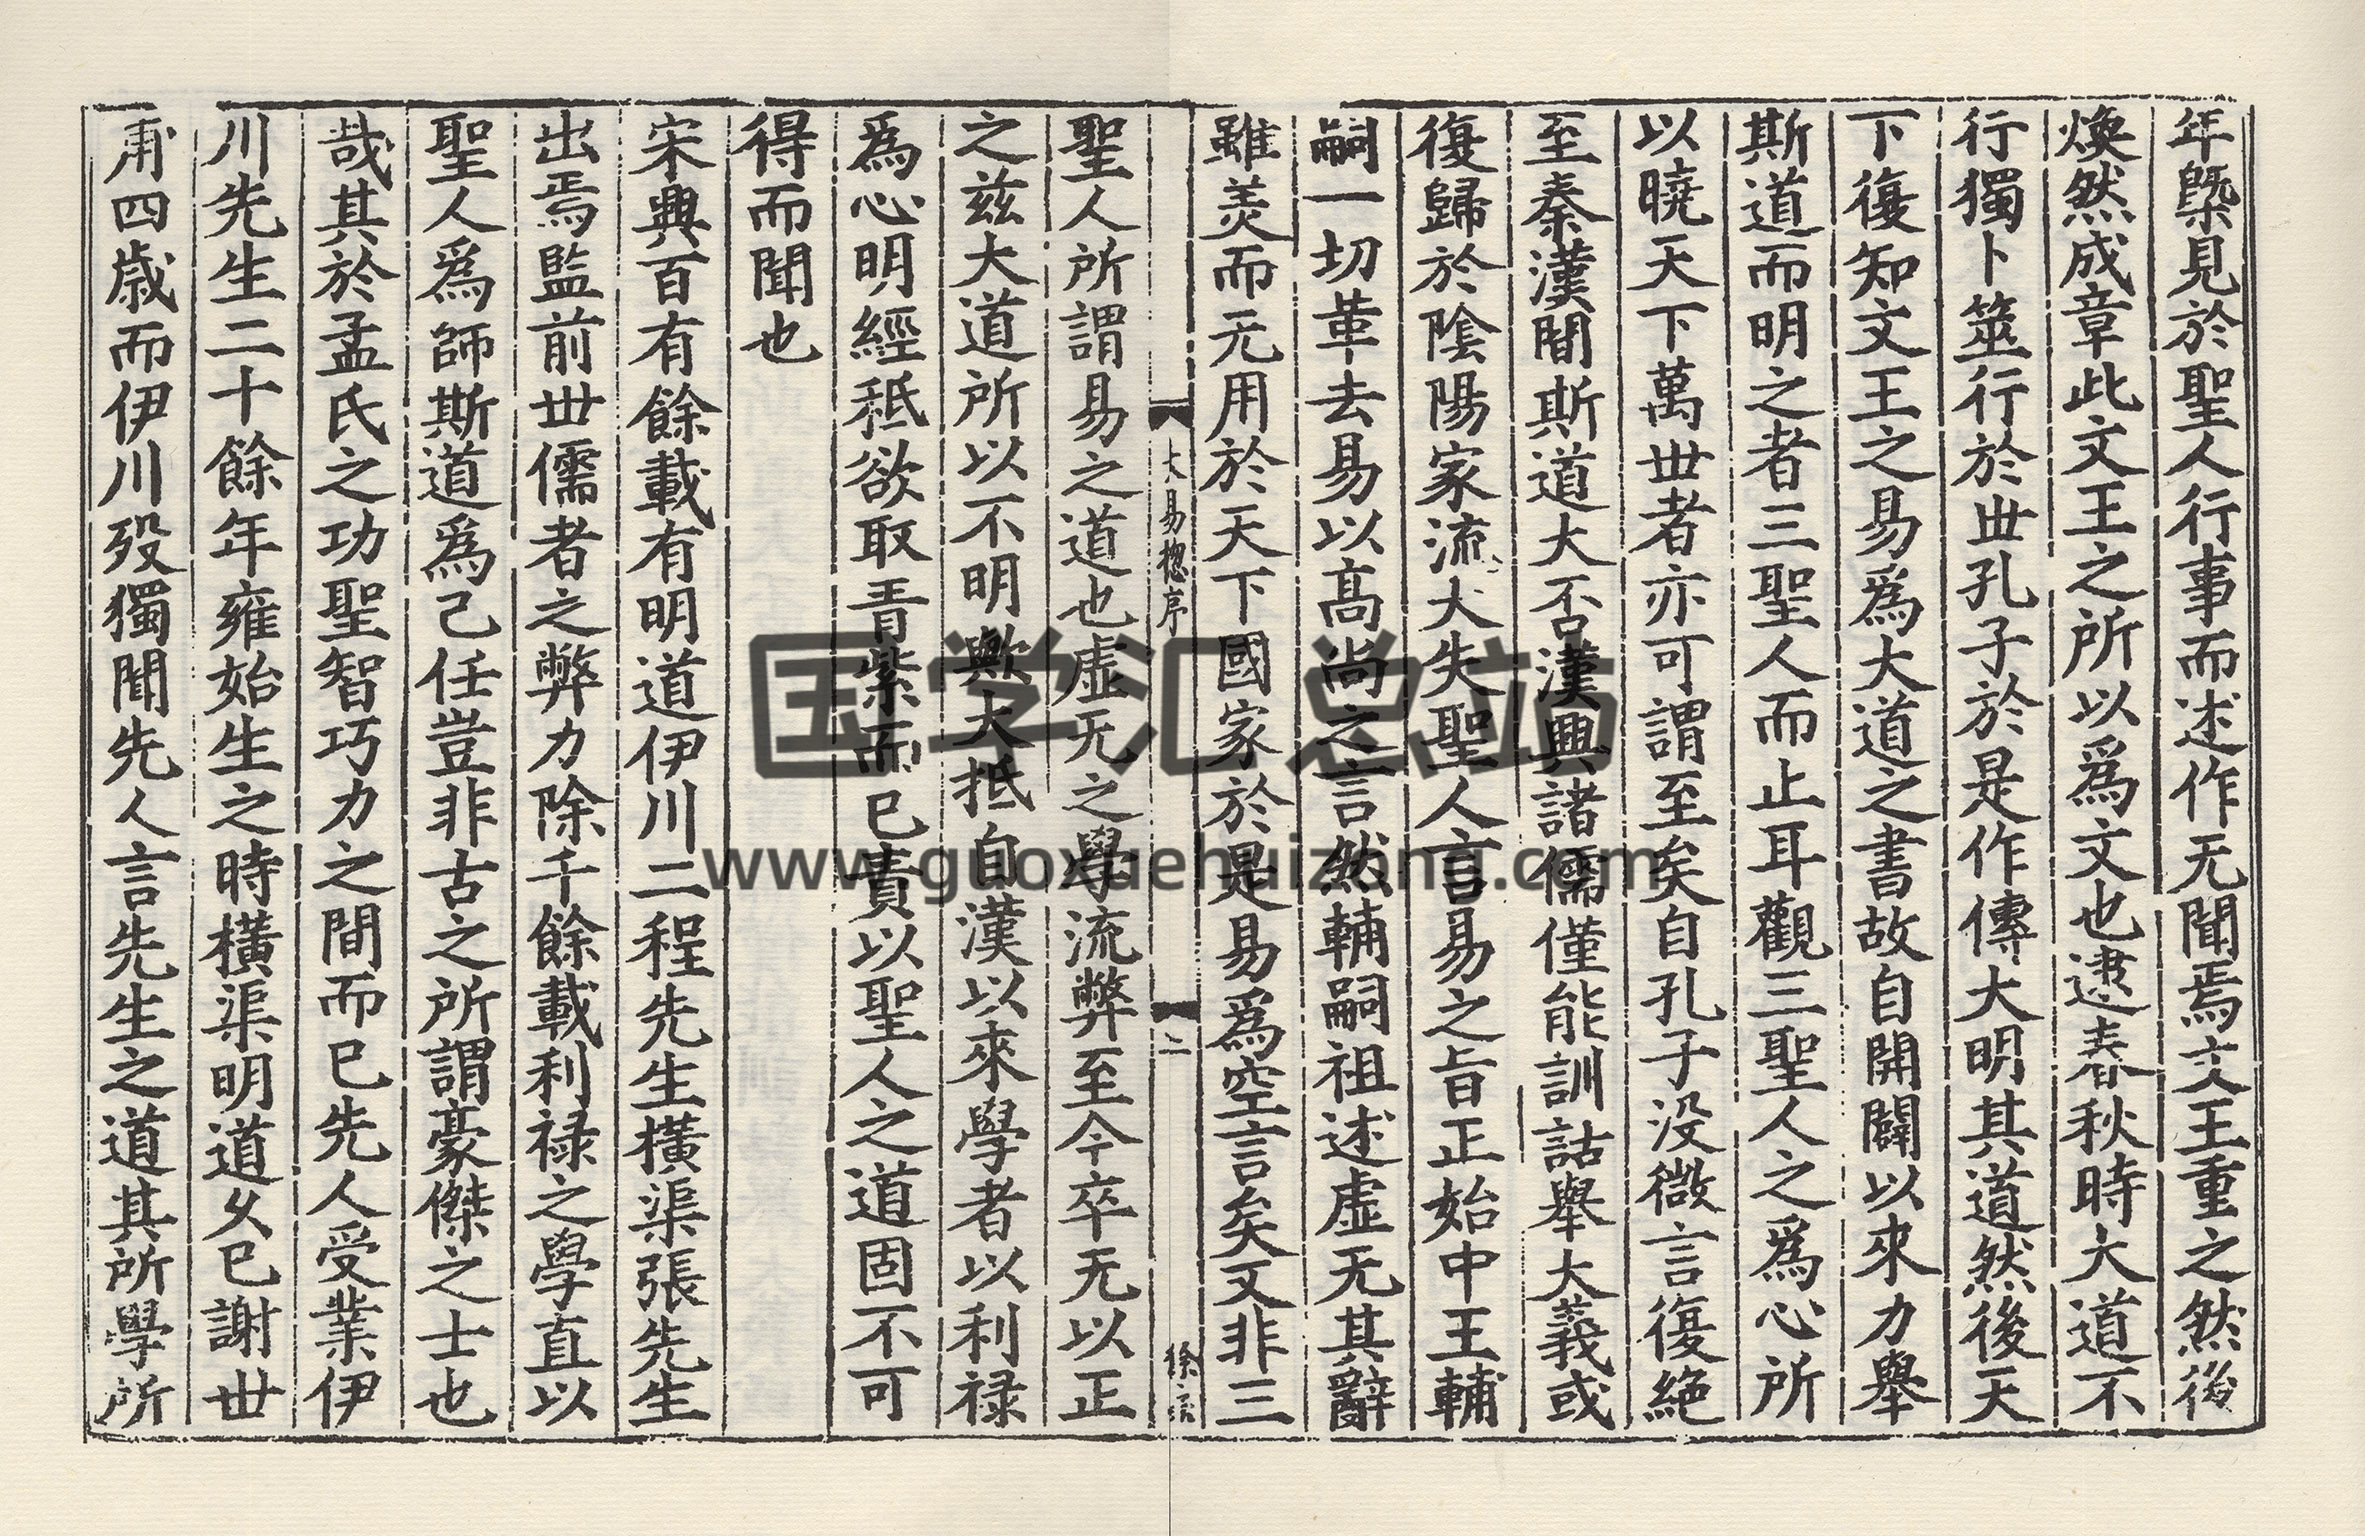 年槩見於聖人行事而述作无聞焉文王重之然後
煥然成章此文王之所以爲文也逮春秋時大道不
行獨卜筮行於世孔子於是作傳大明其道然後天
下復知文王之易爲大道之書故自開闢以來力舉
斯道而明之者三聖人而止耳觀三聖人之爲心所
以曉天下萬世者亦可謂至矣自孔子没微言復絶
至秦漢間斯道大否漢興諸儒僅能訓詁舉大義或
復歸於陰陽家流大失聖人言易之旨正始中王輔
嗣一切革去易以高尚之言然輔嗣祖述虚无其辭
雖美而无用於天下國家於是易爲空言矣又非三
大易揔序
二
徐
聖人所謂易之道也虚无之學流弊至今卒无以正
之兹大道所以不明歟大抵自漢以來學者以利禄
爲心明經秪欲取青紫而已責以聖人之道固不可
得而聞也
宋興百有餘載有明道伊川二程先生橫渠張先生
出焉監前世儒者之弊力除千餘載利禄之學直以
聖人爲師斯道爲己任豈非古之所謂豪傑之士也
哉其於孟氏之功聖智巧力之間而已先人受業伊
川先生二十餘年雍始生之時橫渠明道久已謝世
甫四歳而伊川殁獨聞先人言先生之道其所學所
国学汇总站
www.guoxuehuizong.com